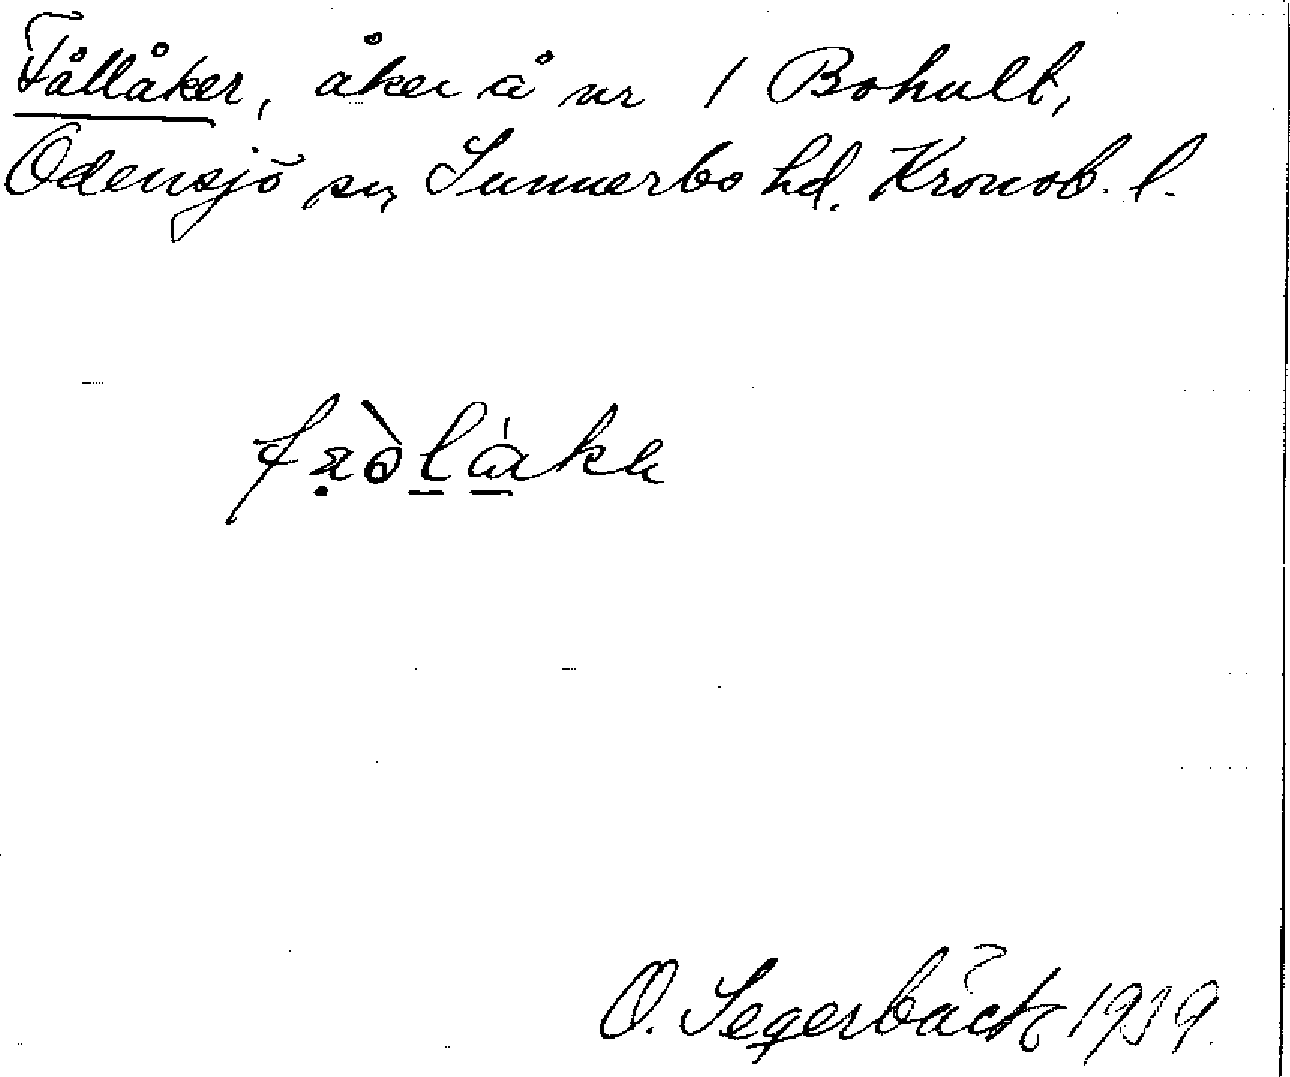 Fållåker, åker å nr 1 Bohult,
Odensjö sn, Sunnerbo hd. Kronob. l.
O. Segerbäck 1939.